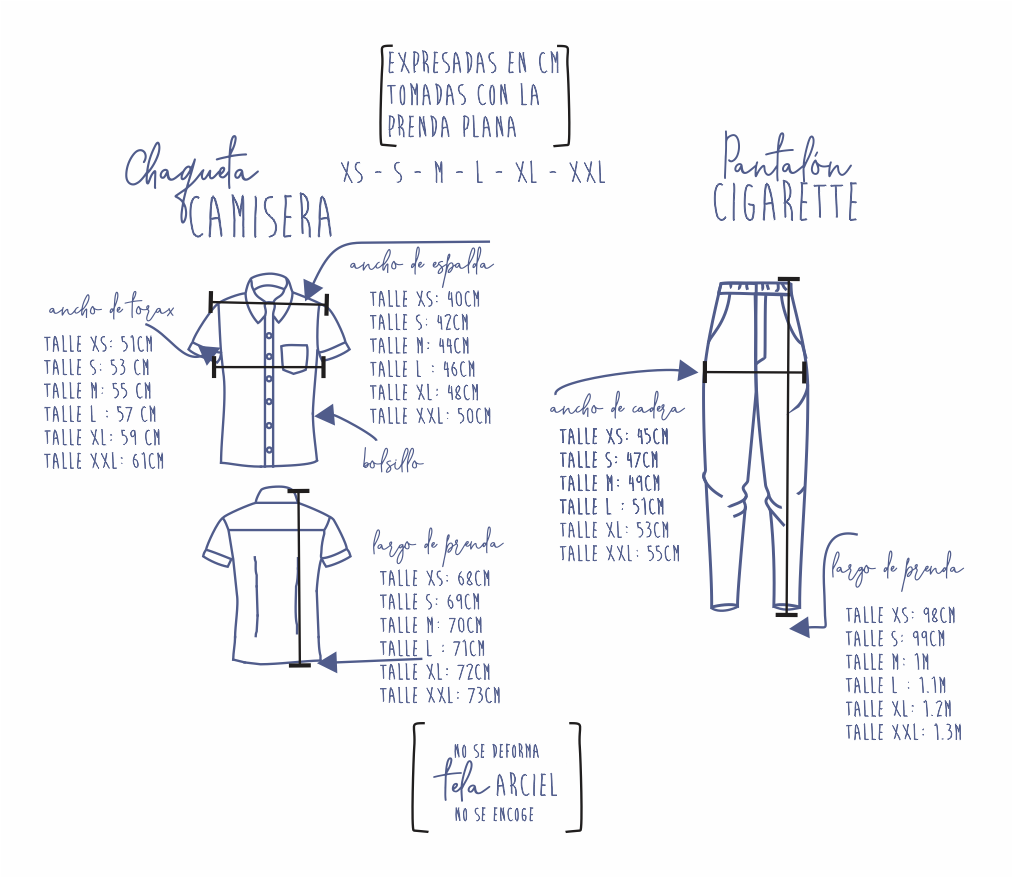 EXPRESADAS EN CM
TOMADAS CON LA
PRENDA PLANA
XS - S - M - L - XL - XXL
Chaqueta
CAMISERA
ancho de espalda
TALLE XS: 40CM
TALLE S: 42CM
TALLE M: 44CM
TALLE L : 46CM
TALLE XL: 48CM
TALLE XXL: 50CM
ancho de torax
TALLE XS: 51CM
TALLE S: 53 CM
TALLE M: 55 CM
TALLE L : 57 CM
TALLE XL: 59 CM
TALLE XXL: 61CM
bolsillo
largo de prenda
TALLE XS: 68CM
TALLE S: 69CM
TALLE M: 70CM
TALLE L : 71CM
TALLE XL: 72CM
TALLE XXL: 73CM
Pantalón
CIGARETTE
ancho de cadera
TALLE XS: 45CM
TALLE S: 47CM
TALLE M: 49CM
TALLE L : 51CM
TALLE XL: 53CM
TALLE XXL: 55CM
largo de prenda
TALLE XS: 98CM
TALLE S: 99CM
TALLE M: 1M
TALLE L : 1.1M
TALLE XL: 1.2M
TALLE XXL: 1.3M
NO SE DEFORMA
tela ARCIEL
NO SE ENCOGE